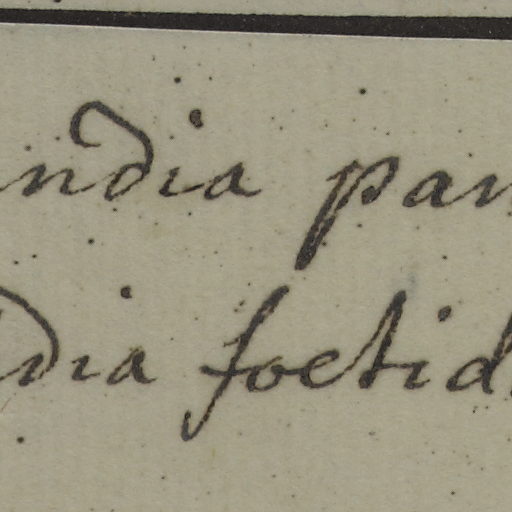 ndia pan
dia foetid